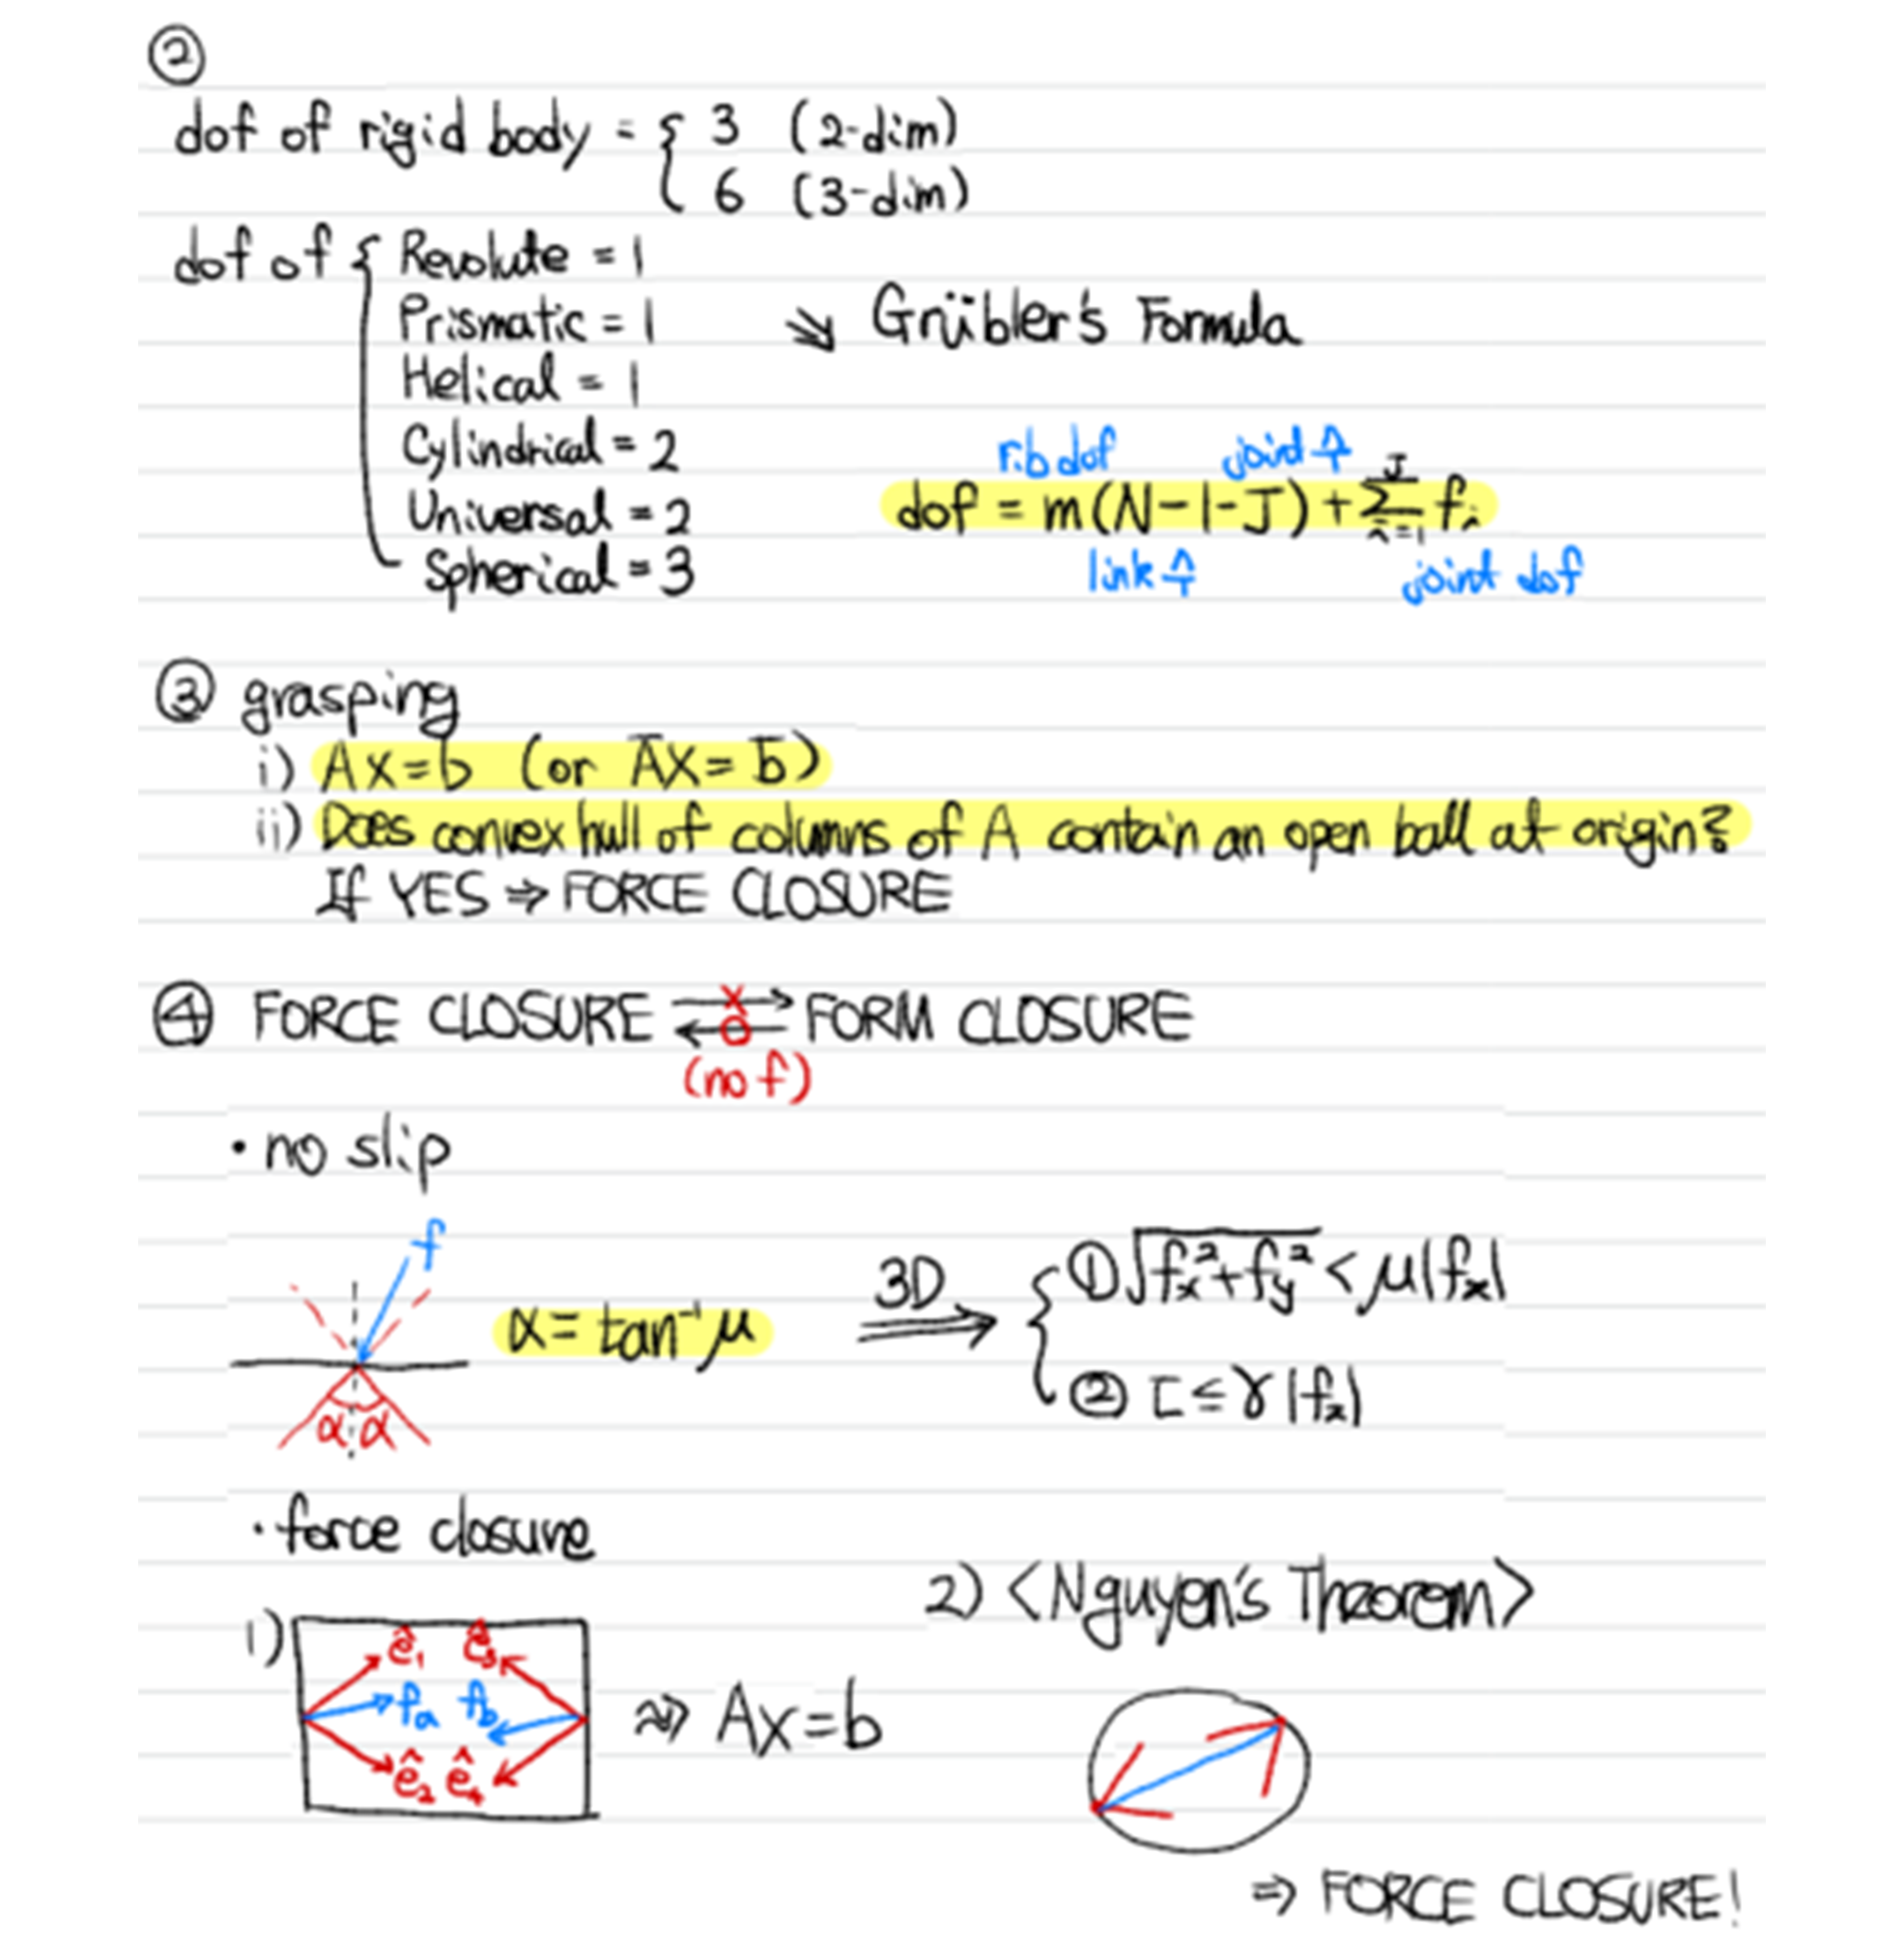 ②
dof of rigid body = { 3 (2-dim)
6 (3-dim)
dof of { Revolute = 1
Prismatic = 1
⇘ Grübler's Formula
Helical = 1
Cylindrical = 2
Universal = 2
Spherical = 3
rib dof joint 수
dof = m(N-1-J) + Σ_{i=1}^{J} f_i
link 수 joint dof
③ grasping
i) Ax=b (or Āx=b̄)
ii) Does convex hull of columns of A contain an open ball at origin?
If YES ⇒ FORCE CLOSURE
④ FORCE CLOSURE ⇄ FORM CLOSURE
X
O
(no f)
• no slip
f
α α
α = tan⁻¹μ
3D ⇒ { ① √(f_x²+f_y²) < μ|f_z|
② τ ≤ γ|f_z|
• force closure
1)
ê₁ ê₃
f_a f_b
ê₂ ê₄
⇒ Ax=b
2) <Nguyen's Theorem>
⇒ FORCE CLOSURE!